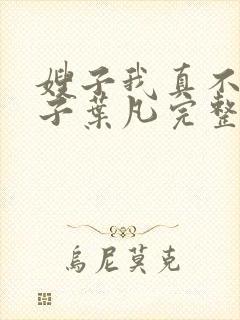 嫂子我真不
子葉凡完整
烏尼莫克